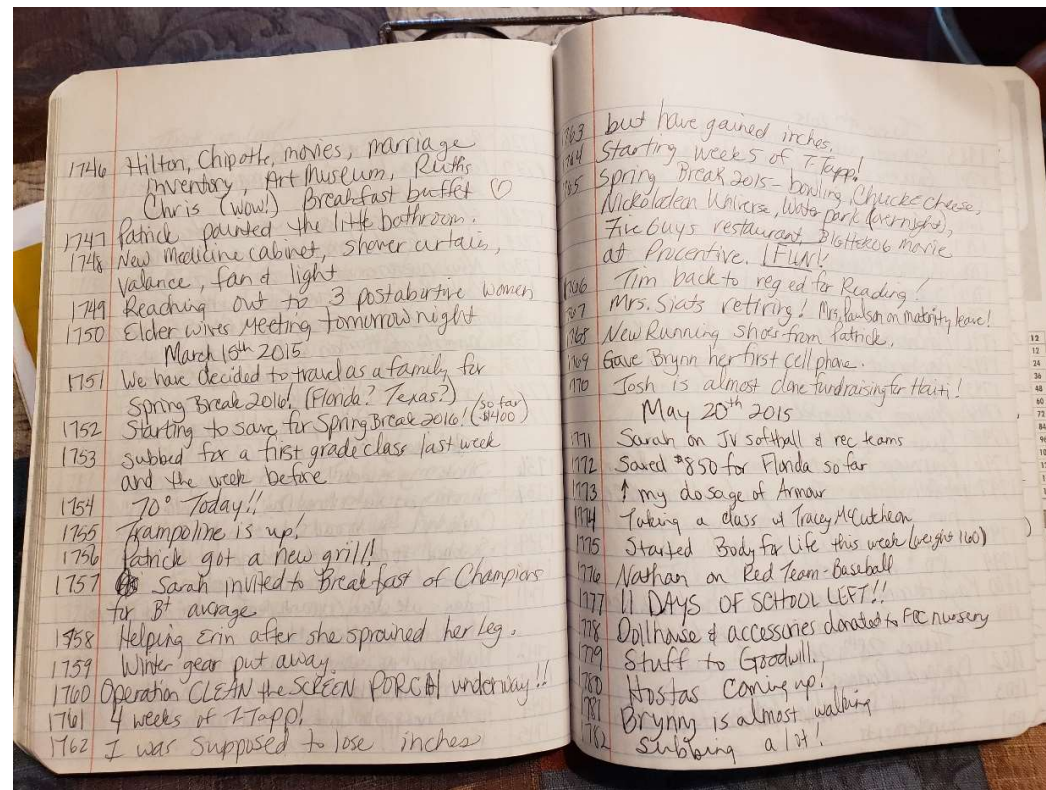 1746 Hilton, Chipotle, movies, marriage
inventory, Art Museum, Ruths
Chris (wow!) Breakfast buffet ♡
1747 Patrick painted the little bathroom.
1748 New medicine cabinet, shower curtain,
valance, fan & light
1749 Reaching out to 3 postabortive women
1750 Elder wives meeting tomorrow night
March 15th 2015
1751 We have decided to travel as a family for
Spring Break 2016! (Florida? Texas?)
1752 Starting to save for Spring Break 2016! (so far $400)
1753 subbed for a first grade class last week
and the week before
1754 70° Today!!
1755 Trampoline is up!
1756 Patrick got a new grill!!
1757 Sarah invited to Breakfast of Champions
for B+ average
1758 Helping Erin after she sprained her leg.
1759 Winter gear put away.
1760 Operation CLEAN the SCREEN PORCH underway!!
1761 4 weeks of T-Tapp!
1762 I was supposed to lose inches
1763 but have gained inches.
1764 Starting week 5 of T-Tapp!
1765 Spring Break 2015 - bowling, Chuckecheese,
Nickolodean Universe, Water park (overnight),
Five Guys restaurant, BIG HERO 6 movie
at Procentive. FUN!
1766 Tim back to reg ed for Reading!
1767 Mrs. Siats retiring! Mrs. Paulson on maternity leave!
1768 New Running shoes from Patrick.
1769 Gave Brynn her first cell phone.
1770 Josh is almost done fundraising for Haiti!
May 20th 2015
1771 Sarah on JV softball & rec teams
1772 Saved $850 for Florida so far
1773 ↑ my dosage of Armour
1774 Taking a class w/ Tracey McCutcheon
1775 Started Body for Life this week (weight 160)
1776 Nathan on Red Team - Baseball
1777 11 DAYS OF SCHOOL LEFT!!
1778 Dollhouse & accessories donated to FCC nursery
1779 Stuff to Goodwill.
1780 Hostas coming up!
1781 Brynny is almost walking
1782 Subbing a lot!
12
12
24
36
48
60
72
84